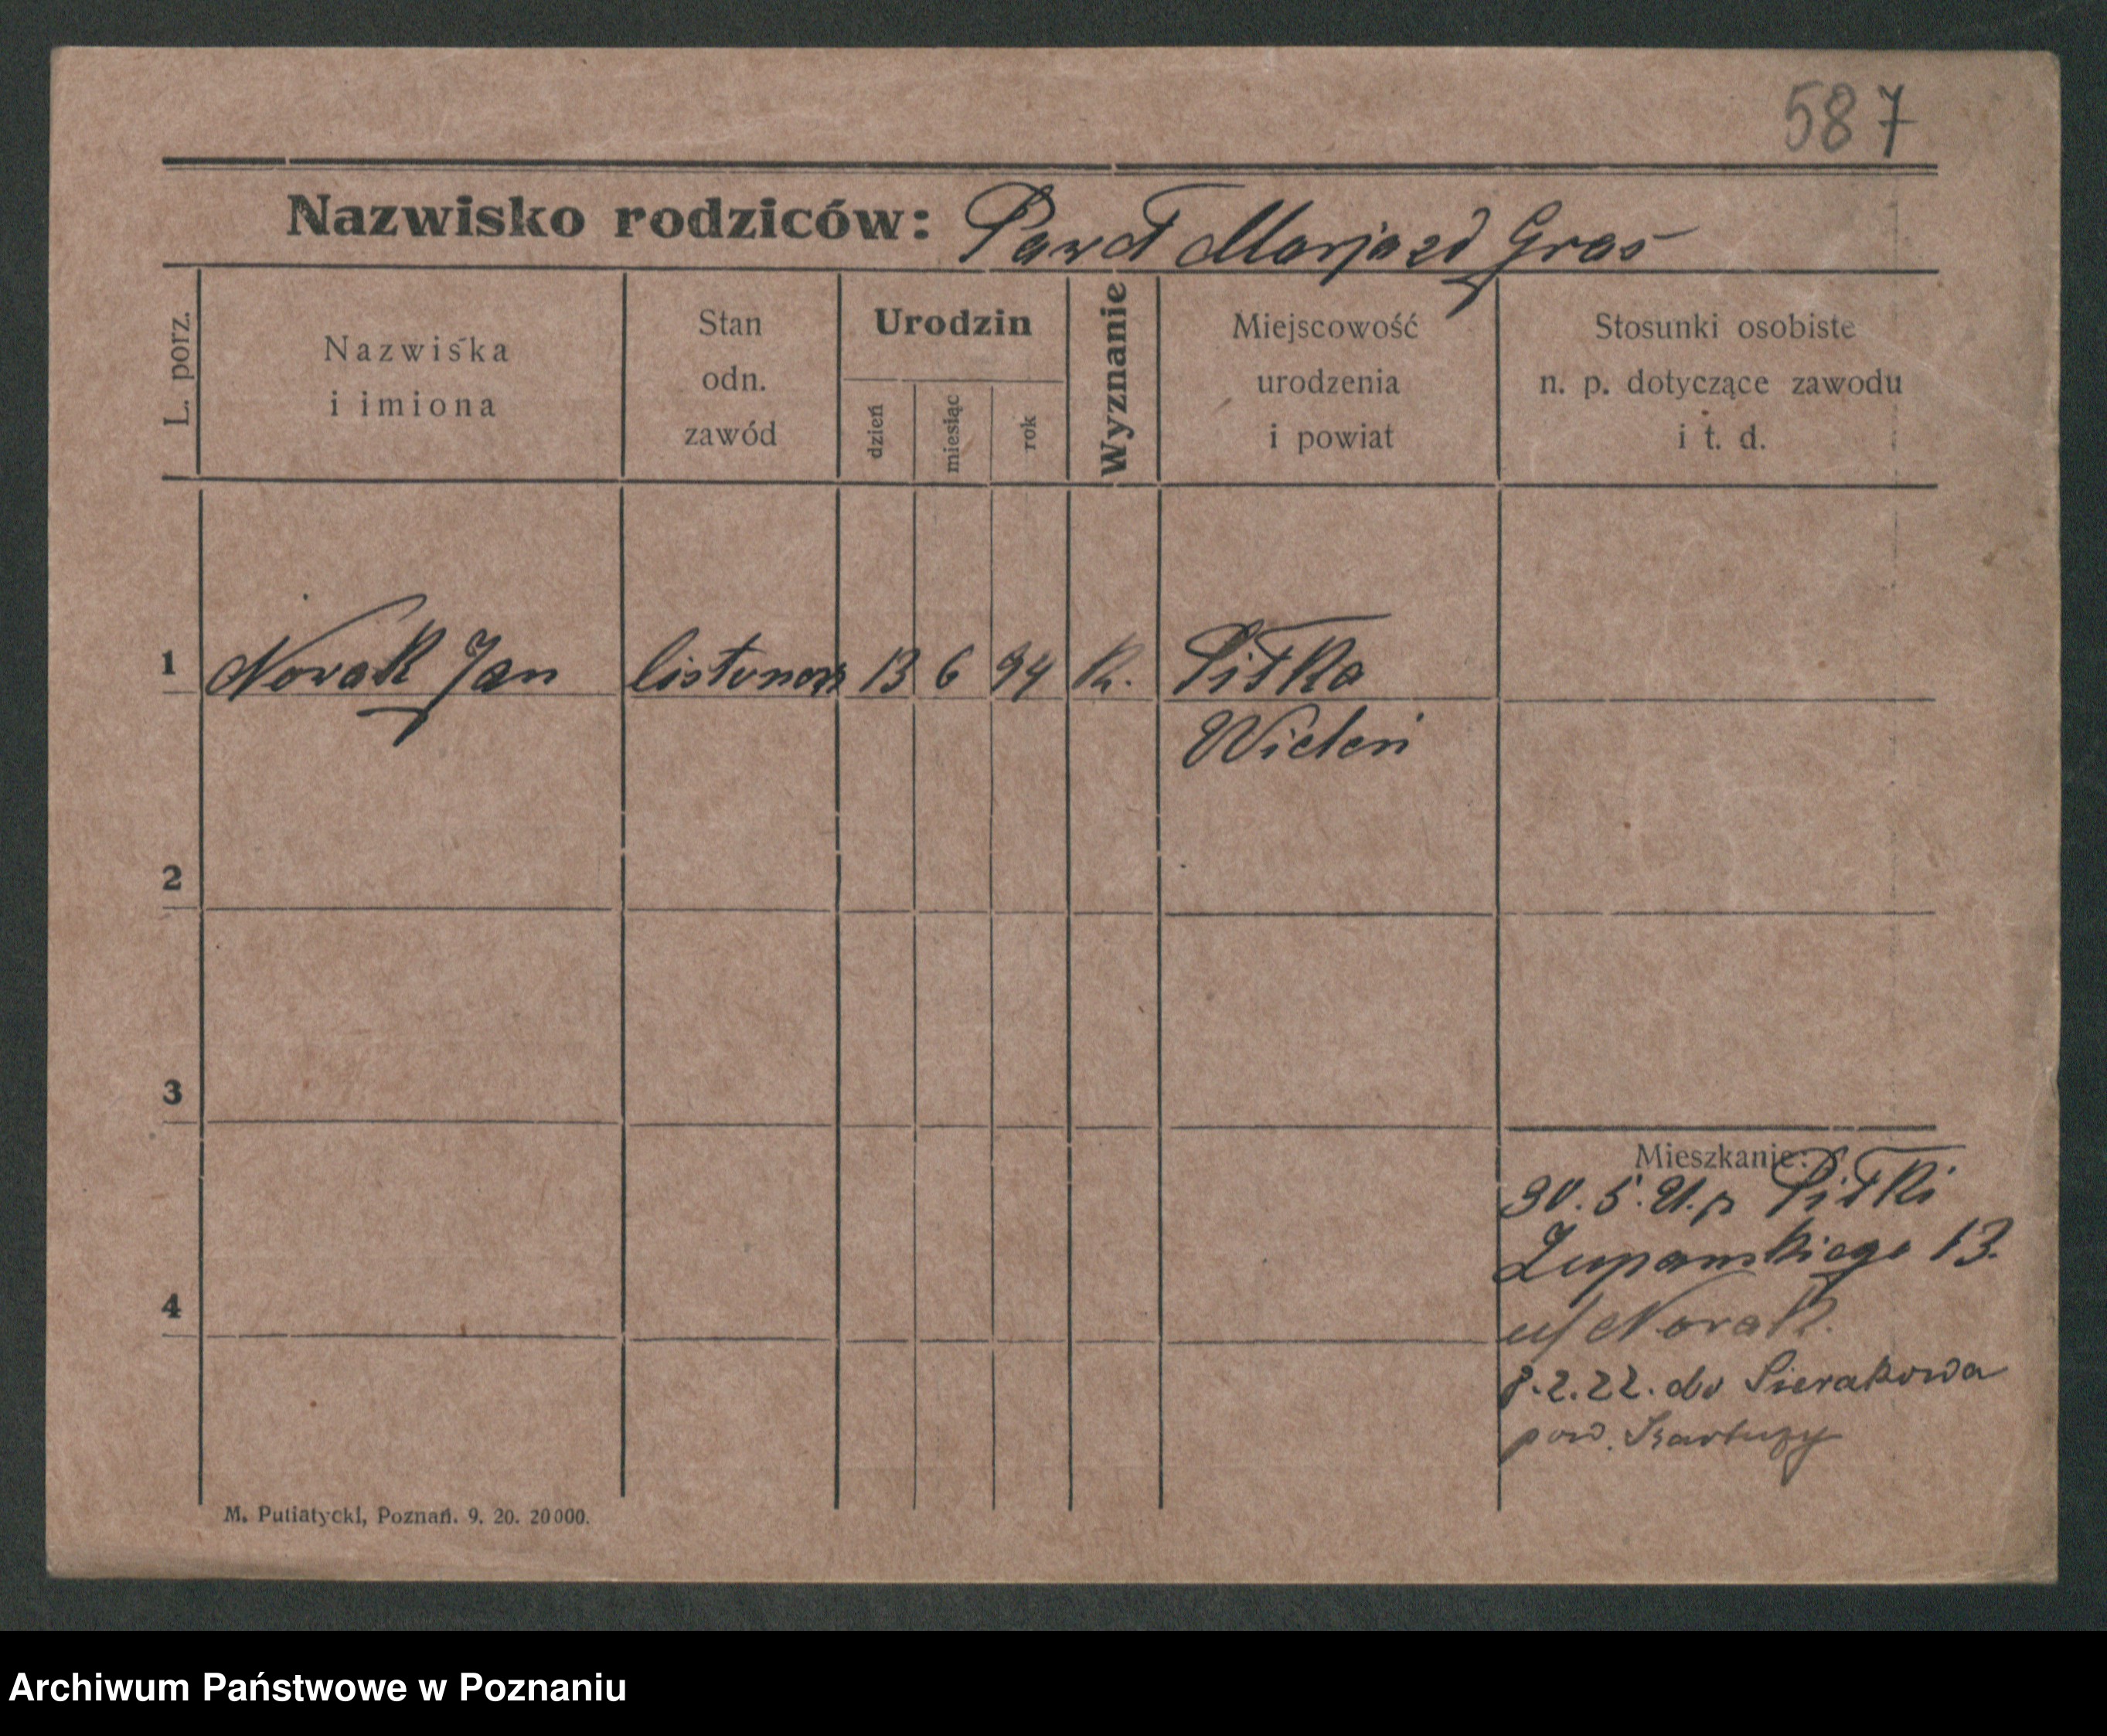 587
Nazwisko rodziców: Paweł Marja zd Graś
L. porz.
Nazwiska
i imiona
Stan
odn.
zawód
Urodzin
dzień
miesiąc
rok
Wyznanie
Miejscowość
urodzenia
i powiat
Stosunki osobiste
n. p. dotyczące zawodu
i t. d.
1 Nowak Jan listonosz 13 6 94 k. Piłka
Wieleń
2
3
4
Mieszkanie:
30. 5. 21. z Piłki
Żupańskiego 13.
u/ Nowak.
8.2.22. do Sierakowa
pow. Kartuzy
M. Putiatycki, Poznań. 9. 20. 20000.
Archiwum Państwowe w Poznaniu